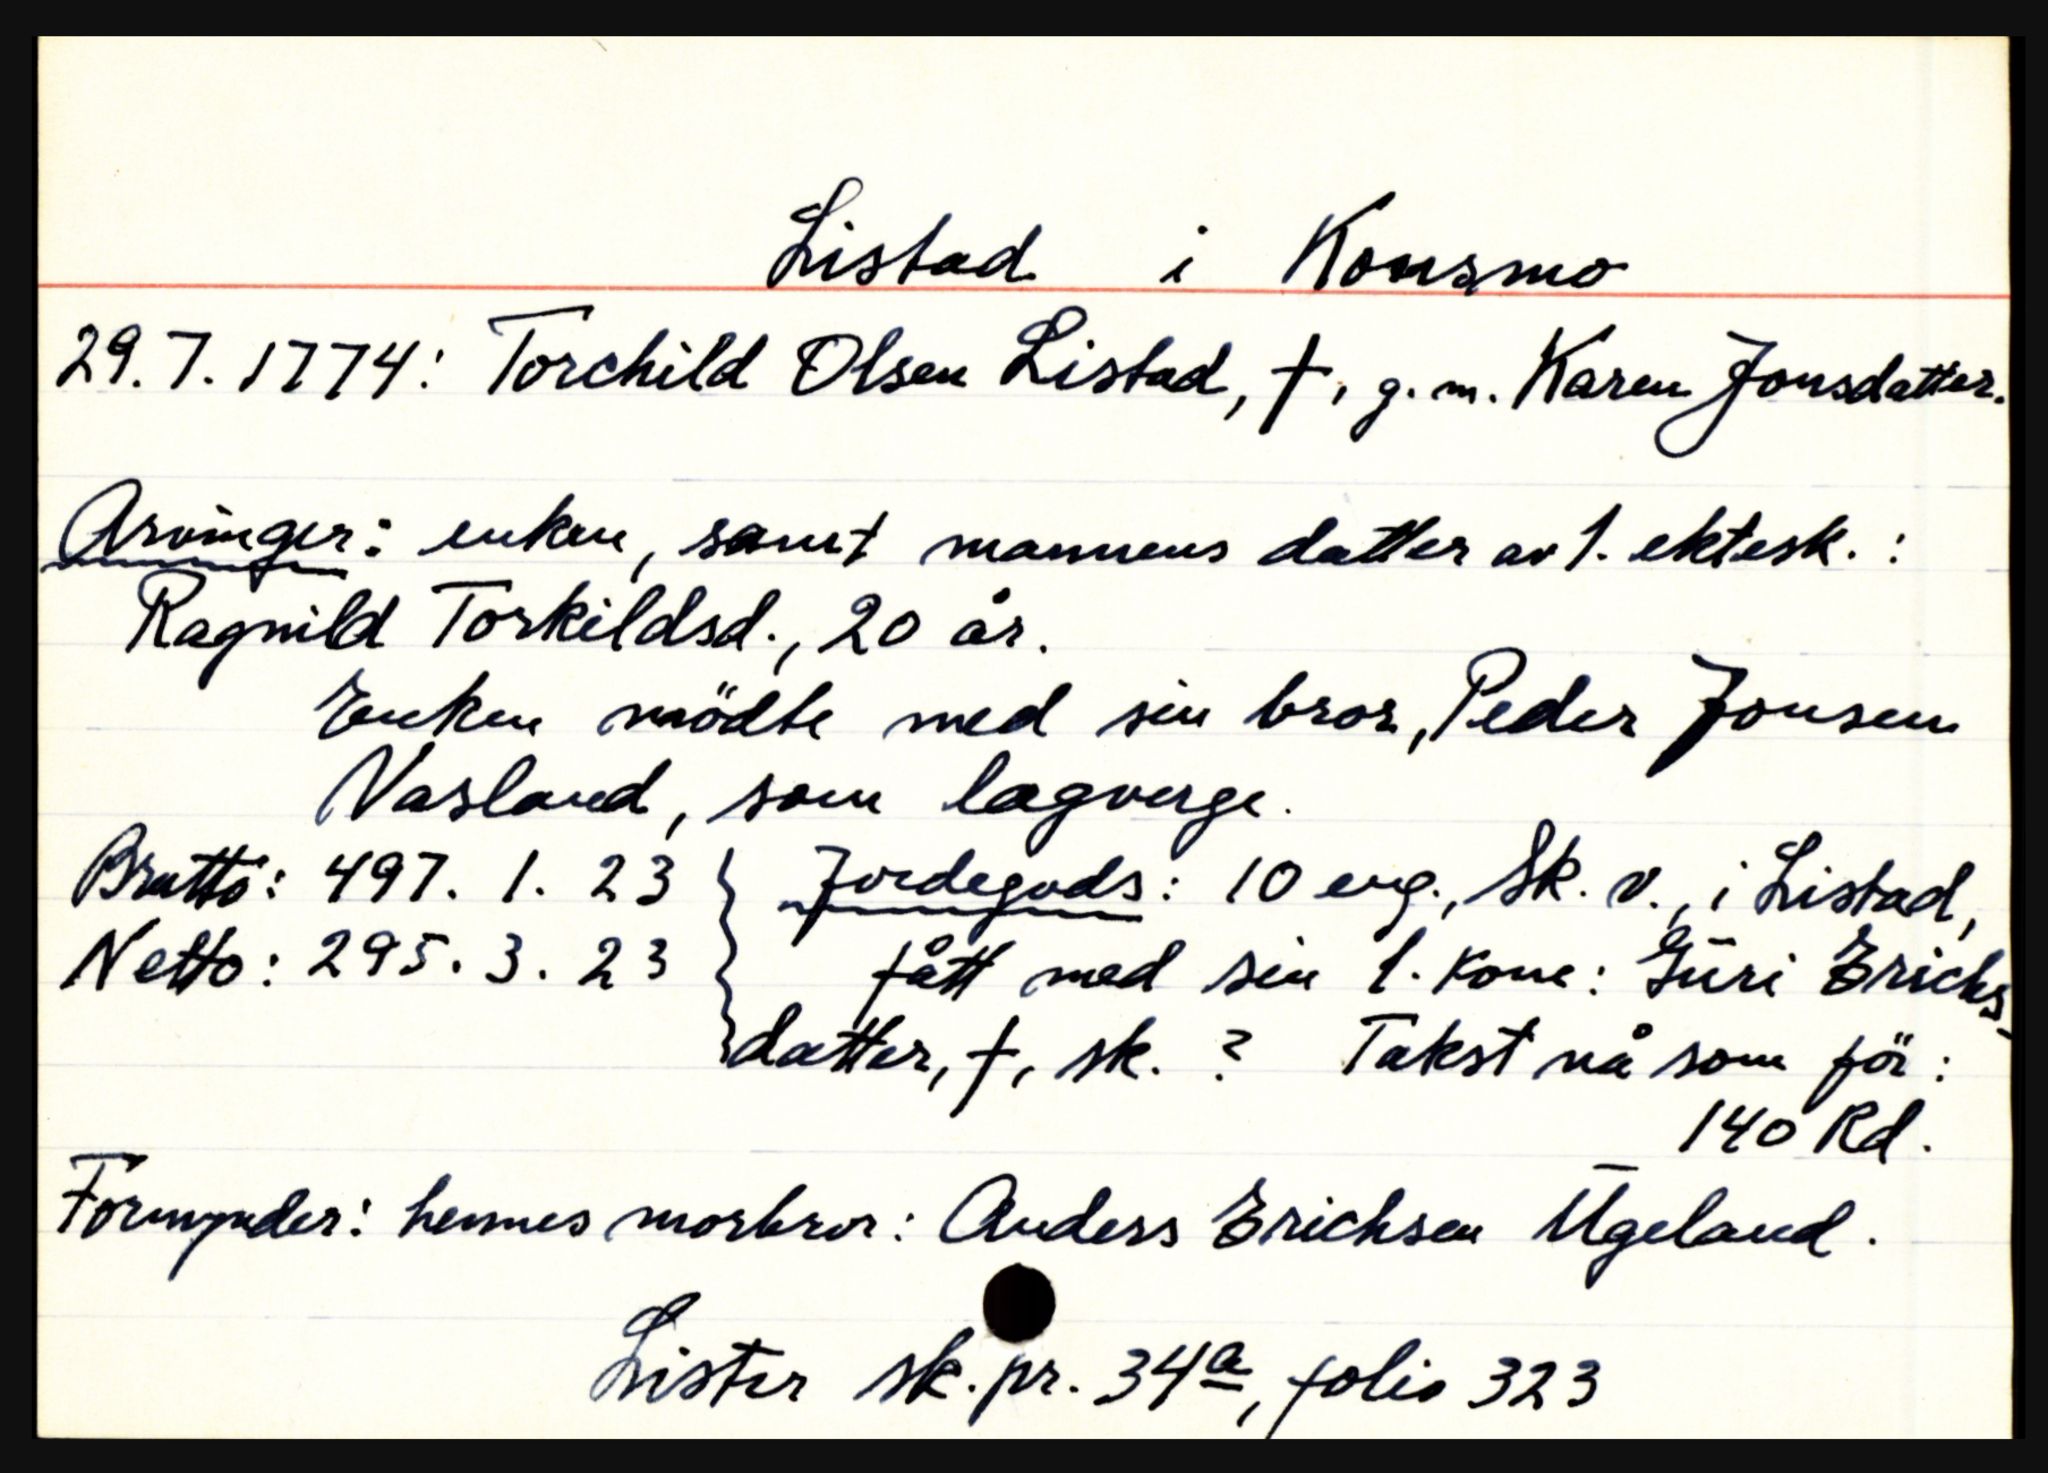 Listad i Konsmo
29. 7. 1774: Torchild Olsen Listad, †, g. m. Karen Jonsdatter.
Arvinger: enken, samt mannens datter av 1. ektesk. :
Ragnild Torkildsd., 20 år.
Enken mödte med sin bror, Peder Jonsen
Vasland, som lagverge.
Brutto: 497. 1. 23 } Jordegods: 10 eng., sk. v., i Listad,
Netto: 295. 3. 23 fått med sin 1. kone: Gūri Erichs-
datter, †, sk. ? Takst nå som för:
140 Rd.
Formynder: hennes morbror: Anders Erichsen Ūgeland.
Lister sk. pr. 34a, folio 323